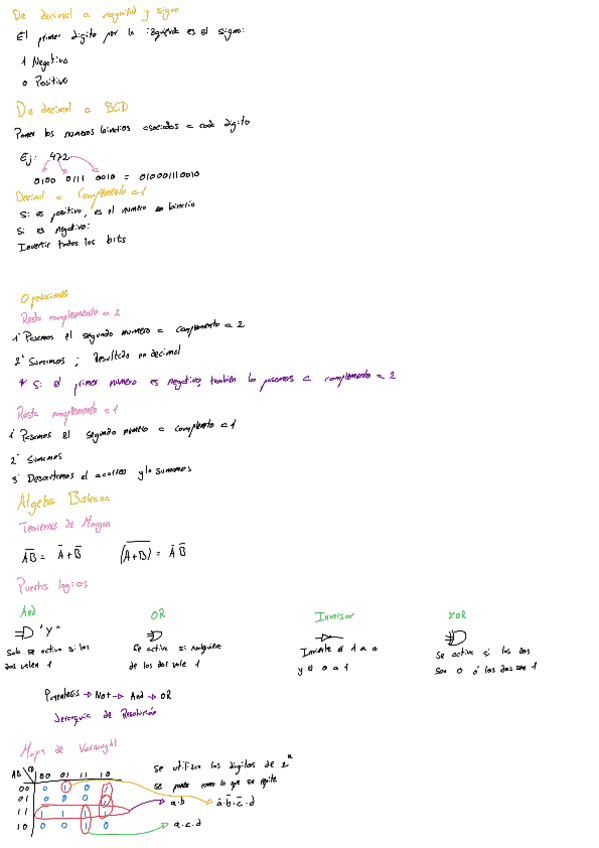 De decimal a magnitud y signo
El primer digito por la izquierda es el signo:
1 Negativo
0 Positivo
De decimal a BCD
Poner los numeros binarios asociados a cada digito
Ej: 472
0100 0111 0010 = 010001110010
Decimal a Complemento a 1
Si es positivo, es el numero en binario
Si es negativo:
Invertir todos los bits
Operaciones
Resta complemento a 2
1º Pasamos el segundo numero a complemento a 2
2º Sumamos ; Resultado en decimal
* Si el primer numero es negativo, tambien lo pasamos a complemento a 2
Resta complemento a 1
1º Pasamos el segundo numero a complemento a 1
2º Sumamos
3º Descartamos el acarreo y lo sumamos
Algebra Boleana
Teoremas de Morgan
A̅B̅ = A̅ + B̅ (A̅+̅B̅) = A̅ B̅
Puertas logicas
And OR Inversor XOR
"Y"
Solo se activa si los dos valen 1
Se activa si cualquiera de los dos vale 1
Invierte el 1 a 0 y el 0 a 1
Se activa si los dos son 0 ó los dos son 1
Parentesis → Not → And → OR
Jerarquia de Resolución
Mapas de Karnaught
AB CD 00 01 11 10
00 0 1 0 1
01 0 0 0 1
11 1 1 1 1
10 0 0 1 0
Se utiliza los digitos de 2ⁿ
se pone como lo que se repite
a·b a̅·b̅·c̅·d
a·c·d